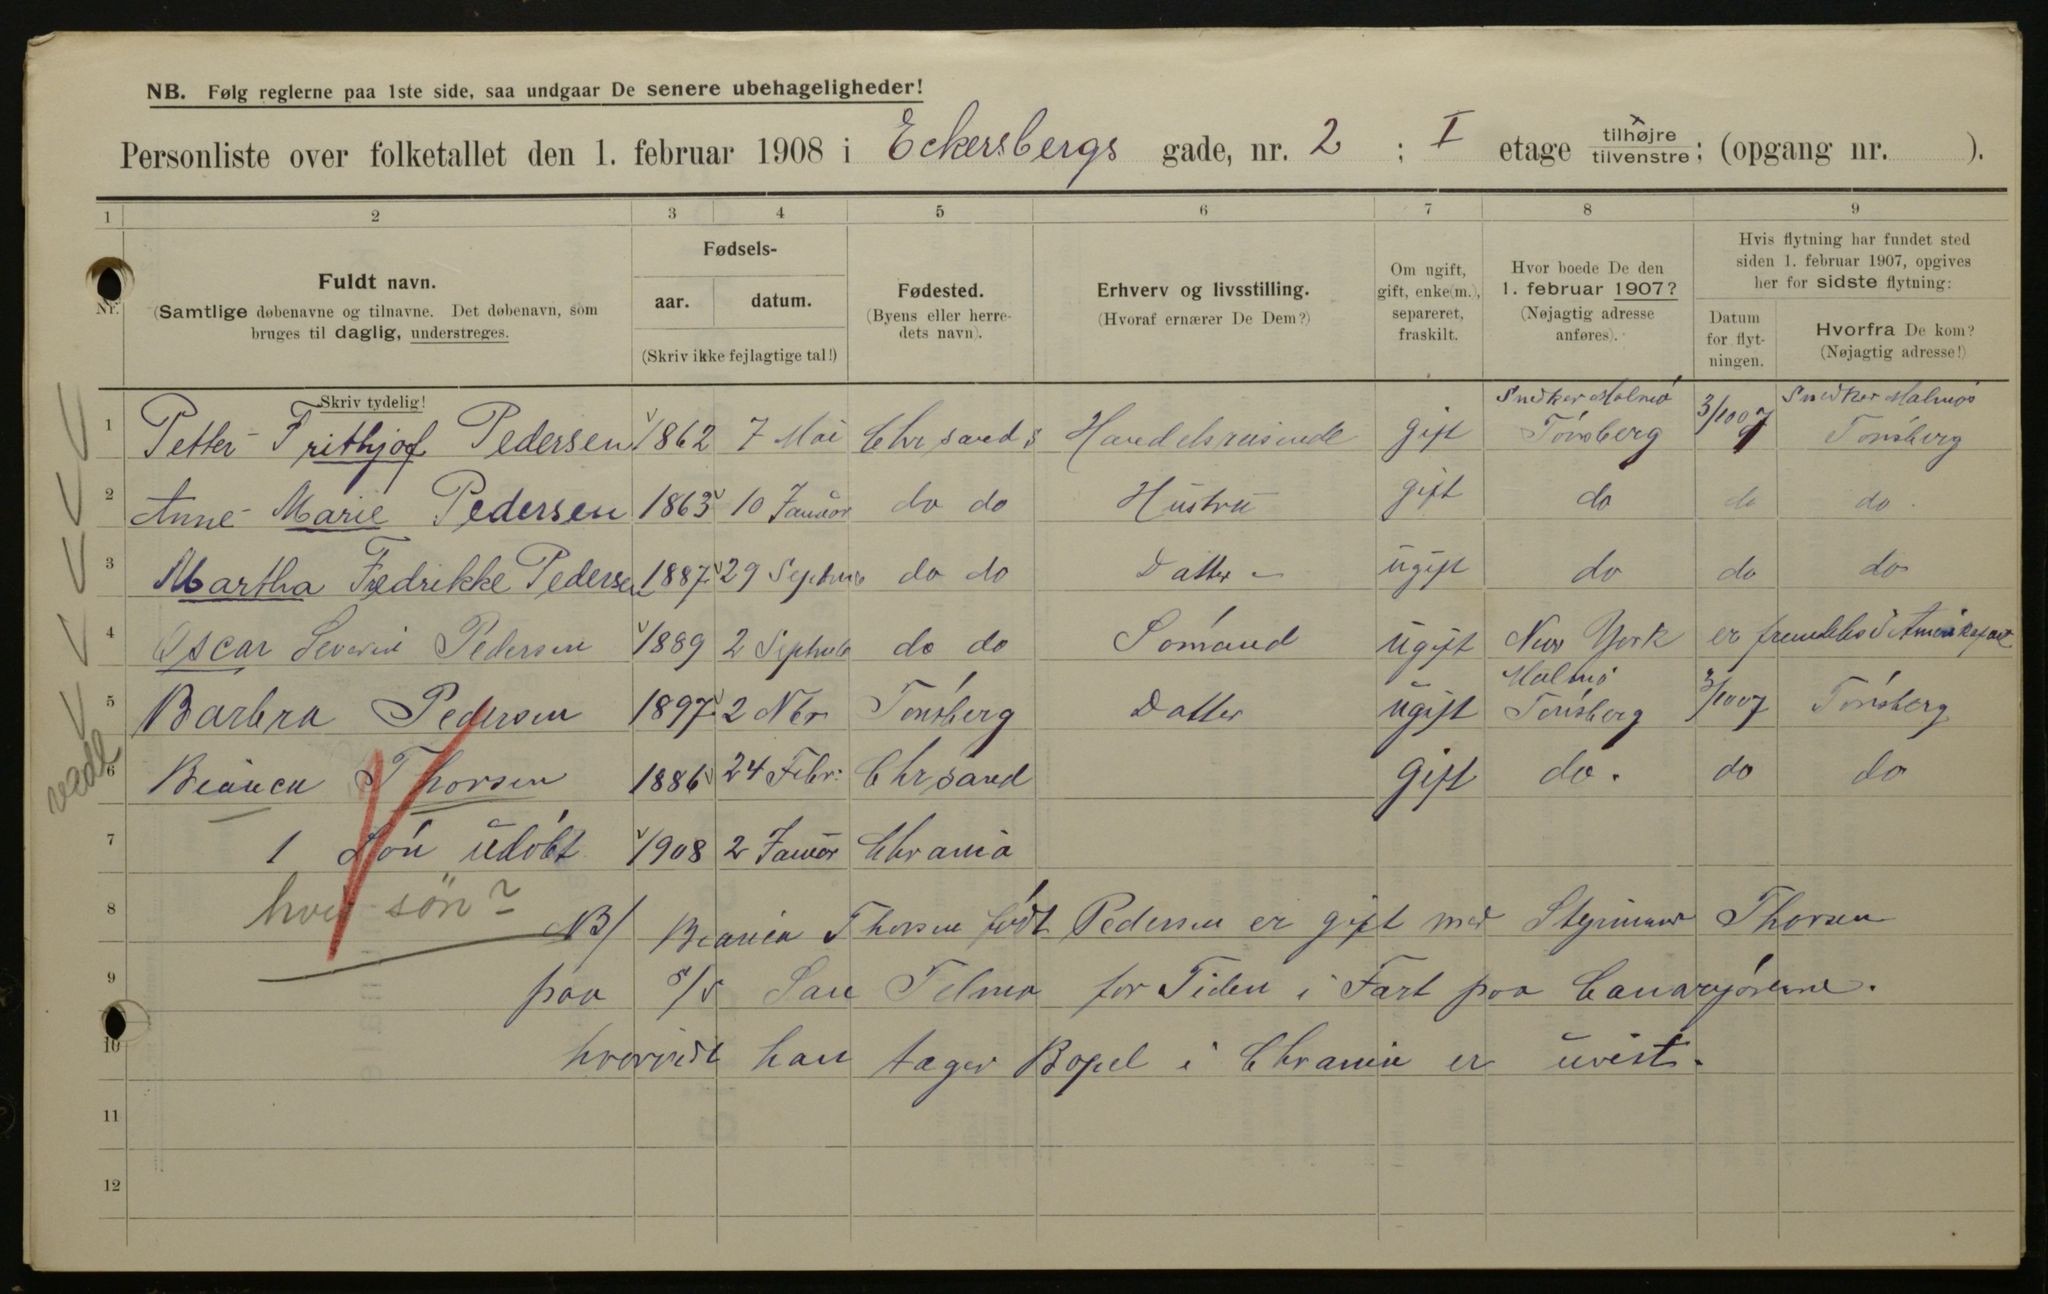 NB. Følg reglerne paa 1ste side, saa undgaar De senere ubehageligheder!
Personliste over folketallet den 1. februar 1908 i Eckersbergs gade, nr. 2 ; I etage tilhøjre/tilvenstre; (opgang nr. ).
1 2 3 4 5 6 7 8 9
Nr.
Fuldt navn.
(Samtlige døbenavne og tilnavne. Det døbenavn, som
bruges til daglig, understreges.
Skriv tydelig!
Fødsels-
aar. datum.
(Skriv ikke fejlagtige tal!)
Fødested.
(Byens eller herre-
dets navn).
Erhverv og livsstilling.
(Hvoraf ernærer De Dem?)
Om ugift,
gift, enke(m.),
separeret,
fraskilt.
Hvor boede De den
1. februar 1907?
(Nøjagtig adresse
anføres).
Hvis flytning har fundet sted
siden 1. februar 1907, opgives
her for sidste flytning:
Datum
for flyt-
ningen.
Hvorfra De kom?
(Nøjagtig adresse!)
Snedker Malmø Snedker Malmøs
1 Petter Frithjof Pedersen 1862 7 Mai Chrsands Handelsreisende gift Tónsberg 3/10 07 Tónsberg
2 Anne Marie Pedersen 1863 10 Januar do do Hustru gift do do do
3 Martha Fredrikke Pedersen 1887 29 Septmb do do Datter ugift do do do
4 Oscar Severin Pedersen 1889 2 Septmb do do Sómand ugift New York er fremdeles i Amerikafart
Malmó
5 Barbra Pedersen 1897 2 Nbr Tónsberg Datter ugift Tónsberg 3/10 07 Tónsberg
6 Bianca Thorsen 1886 24 Febr: Chrsand gift do. do do
7 1 Són udóbt 1908 2 Januar Chrania
hvis søn?
8 NB/ Bianca Thorsen fódt Pedersen er gift med Styrmand Thorsen
9 paa S/S San Telmo for Tiden i Fart paa Canariøerne.
10 hvorvidt han tager Bopel i Chrania er uvist.
11
12